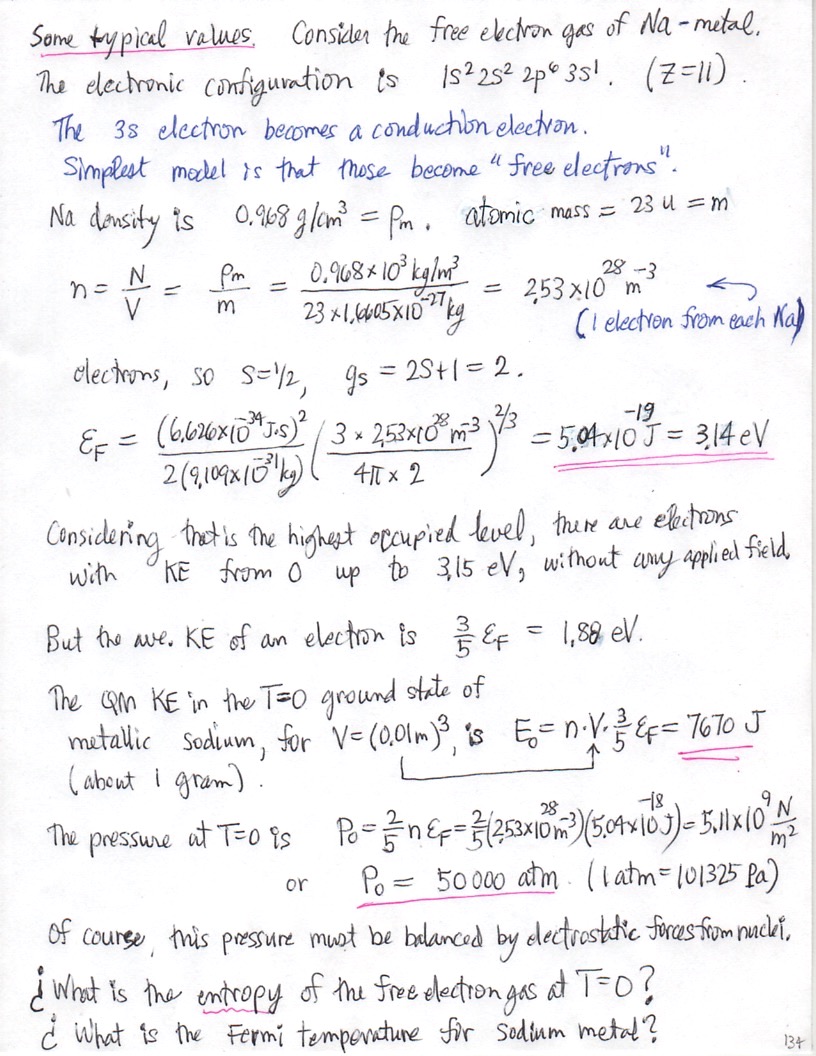 Some typical values. Consider the free electron gas of Na-metal.
The electronic configuration is 1s² 2s² 2p⁶ 3s¹. (Z=11).
The 3s electron becomes a conduction electron.
Simplest model is that those become "free electrons".
Na density is 0.968 g/cm³ = ρₘ. atomic mass = 23 u = m
n = N/V = ρₘ/m = (0.968×10³ kg/m³)/(23×1.6605×10⁻²⁷ kg) = 2.53×10²⁸ m⁻³
(1 electron from each Na)
electrons, so S=1/2, gₛ = 2S+1 = 2.
ε_F = (6.626×10⁻³⁴ J·s)²/(2(9.109×10⁻³¹ kg)) ((3 × 2.53×10²⁸ m⁻³)/(4π × 2))^(2/3) = 5.04×10⁻¹⁹ J = 3.14 eV
Considering that is the highest occupied level, there are electrons
with KE from 0 up to 3.15 eV, without any applied field.
But the ave. KE of an electron is 3/5 ε_F = 1.88 eV.
The QM KE in the T=0 ground state of
metallic sodium, for V=(0.01m)³, is E₀ = n·V·3/5 ε_F = 7670 J
(about 1 gram).
The pressure at T=0 is P₀ = 2/5 n ε_F = 2/5 (2.53×10²⁸ m⁻³)(5.04×10⁻¹⁸ J) = 5.11×10⁹ N/m²
or P₀ = 50000 atm. (1 atm = 101325 Pa)
Of course, this pressure must be balanced by electrostatic forces from nuclei.
¿ What is the entropy of the free electron gas at T=0?
¿ What is the Fermi temperature for Sodium metal?
134